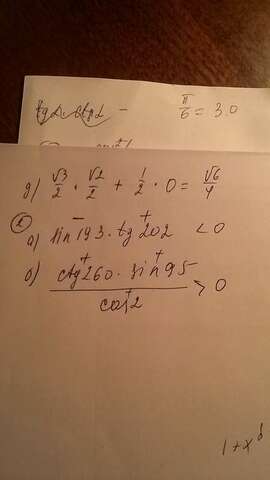 tgα · ctgα - π/6 = 3.0
д) √3/2 · √2/2 + 1/2 · 0 = √6/4
②
а) sin 193 · tg 202 < 0
- +
б) ctg 260 · sin 95 / cos 2 > 0
+ + +
1 + x